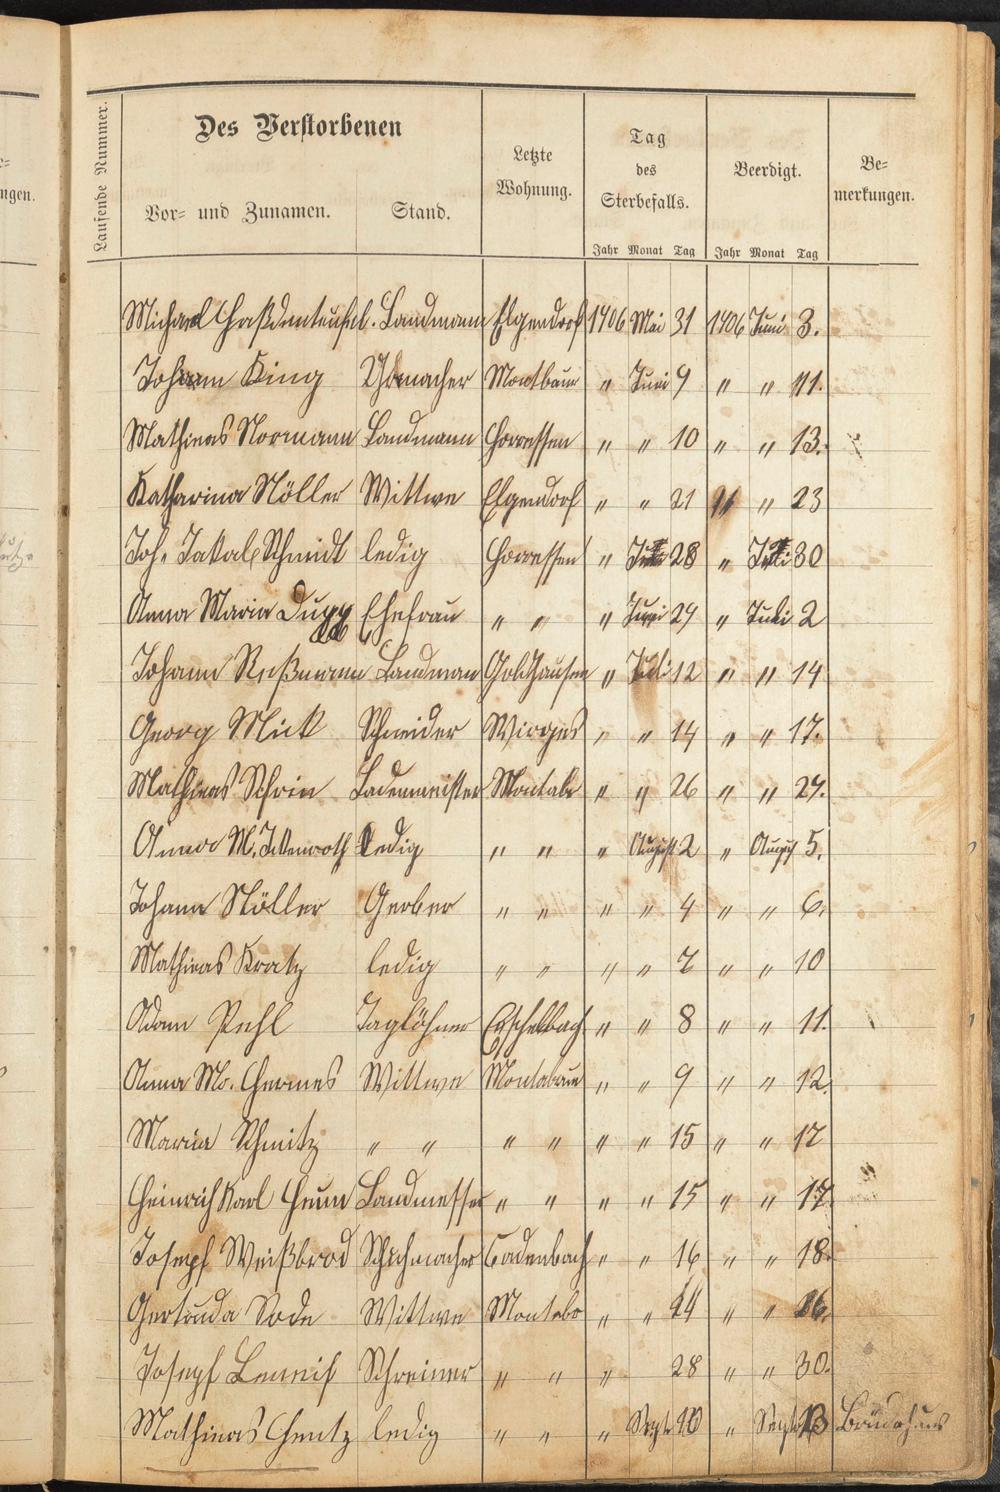 Laufende Nummer.
Des Verstorbenen
Vor- und Zunamen. Stand.
Letzte
Wohnung.
Tag
des
Sterbefalls.
Beerdigt.
Be-
merkungen.
Jahr Monat Tag Jahr Monat Tag
ngen.
Michael Landmann Elgendorf 1906 Mai 31 1906 Juni 3.
Johann King Uhrmacher Montbaur " Juni 9 " " 11.
Mathias Normann Landmann Horressen " " 10 " " 13.
Katharina Nöller Wittwe Elgendorf " " 21 " " 23
Joh. Jakob Schmidt ledig Horressen " 28 " 30
Anna Maria Ehefrau " " " Juni 29 " Juli 2
Johann Landman Goldhausen " Juli 12 " " 14
Georg Mick Schneider Wirges " " 14 " " 17.
Mathias Lademeister Montab " " 26 " " 27.
Anna M. ledig " " " August 2 " Aug 5.
Johann Nöller Gerber " " " " 4 " " 6.
Mathias Kratz ledig " " " " 7 " " 10
Adam Pehl Taglöhner Eschelbach " " 8 " " 11.
Anna M. Hermes Wittwe Montabaur " " 9 " " 12.
Maria Schmitz " " " " " " 15 " " 17
Heinrich Karl Landmesser " " " " 15 " " 17.
Joseph Weißbrod Schuhmacher Cadenbach " " 16 " " 18.
Gertruda Wittwe Montab " " 24 " " 26.
Joseph Schreiner " " " 28 " " 30.
Mathias ledig " " " Sept 10 " Sept 13